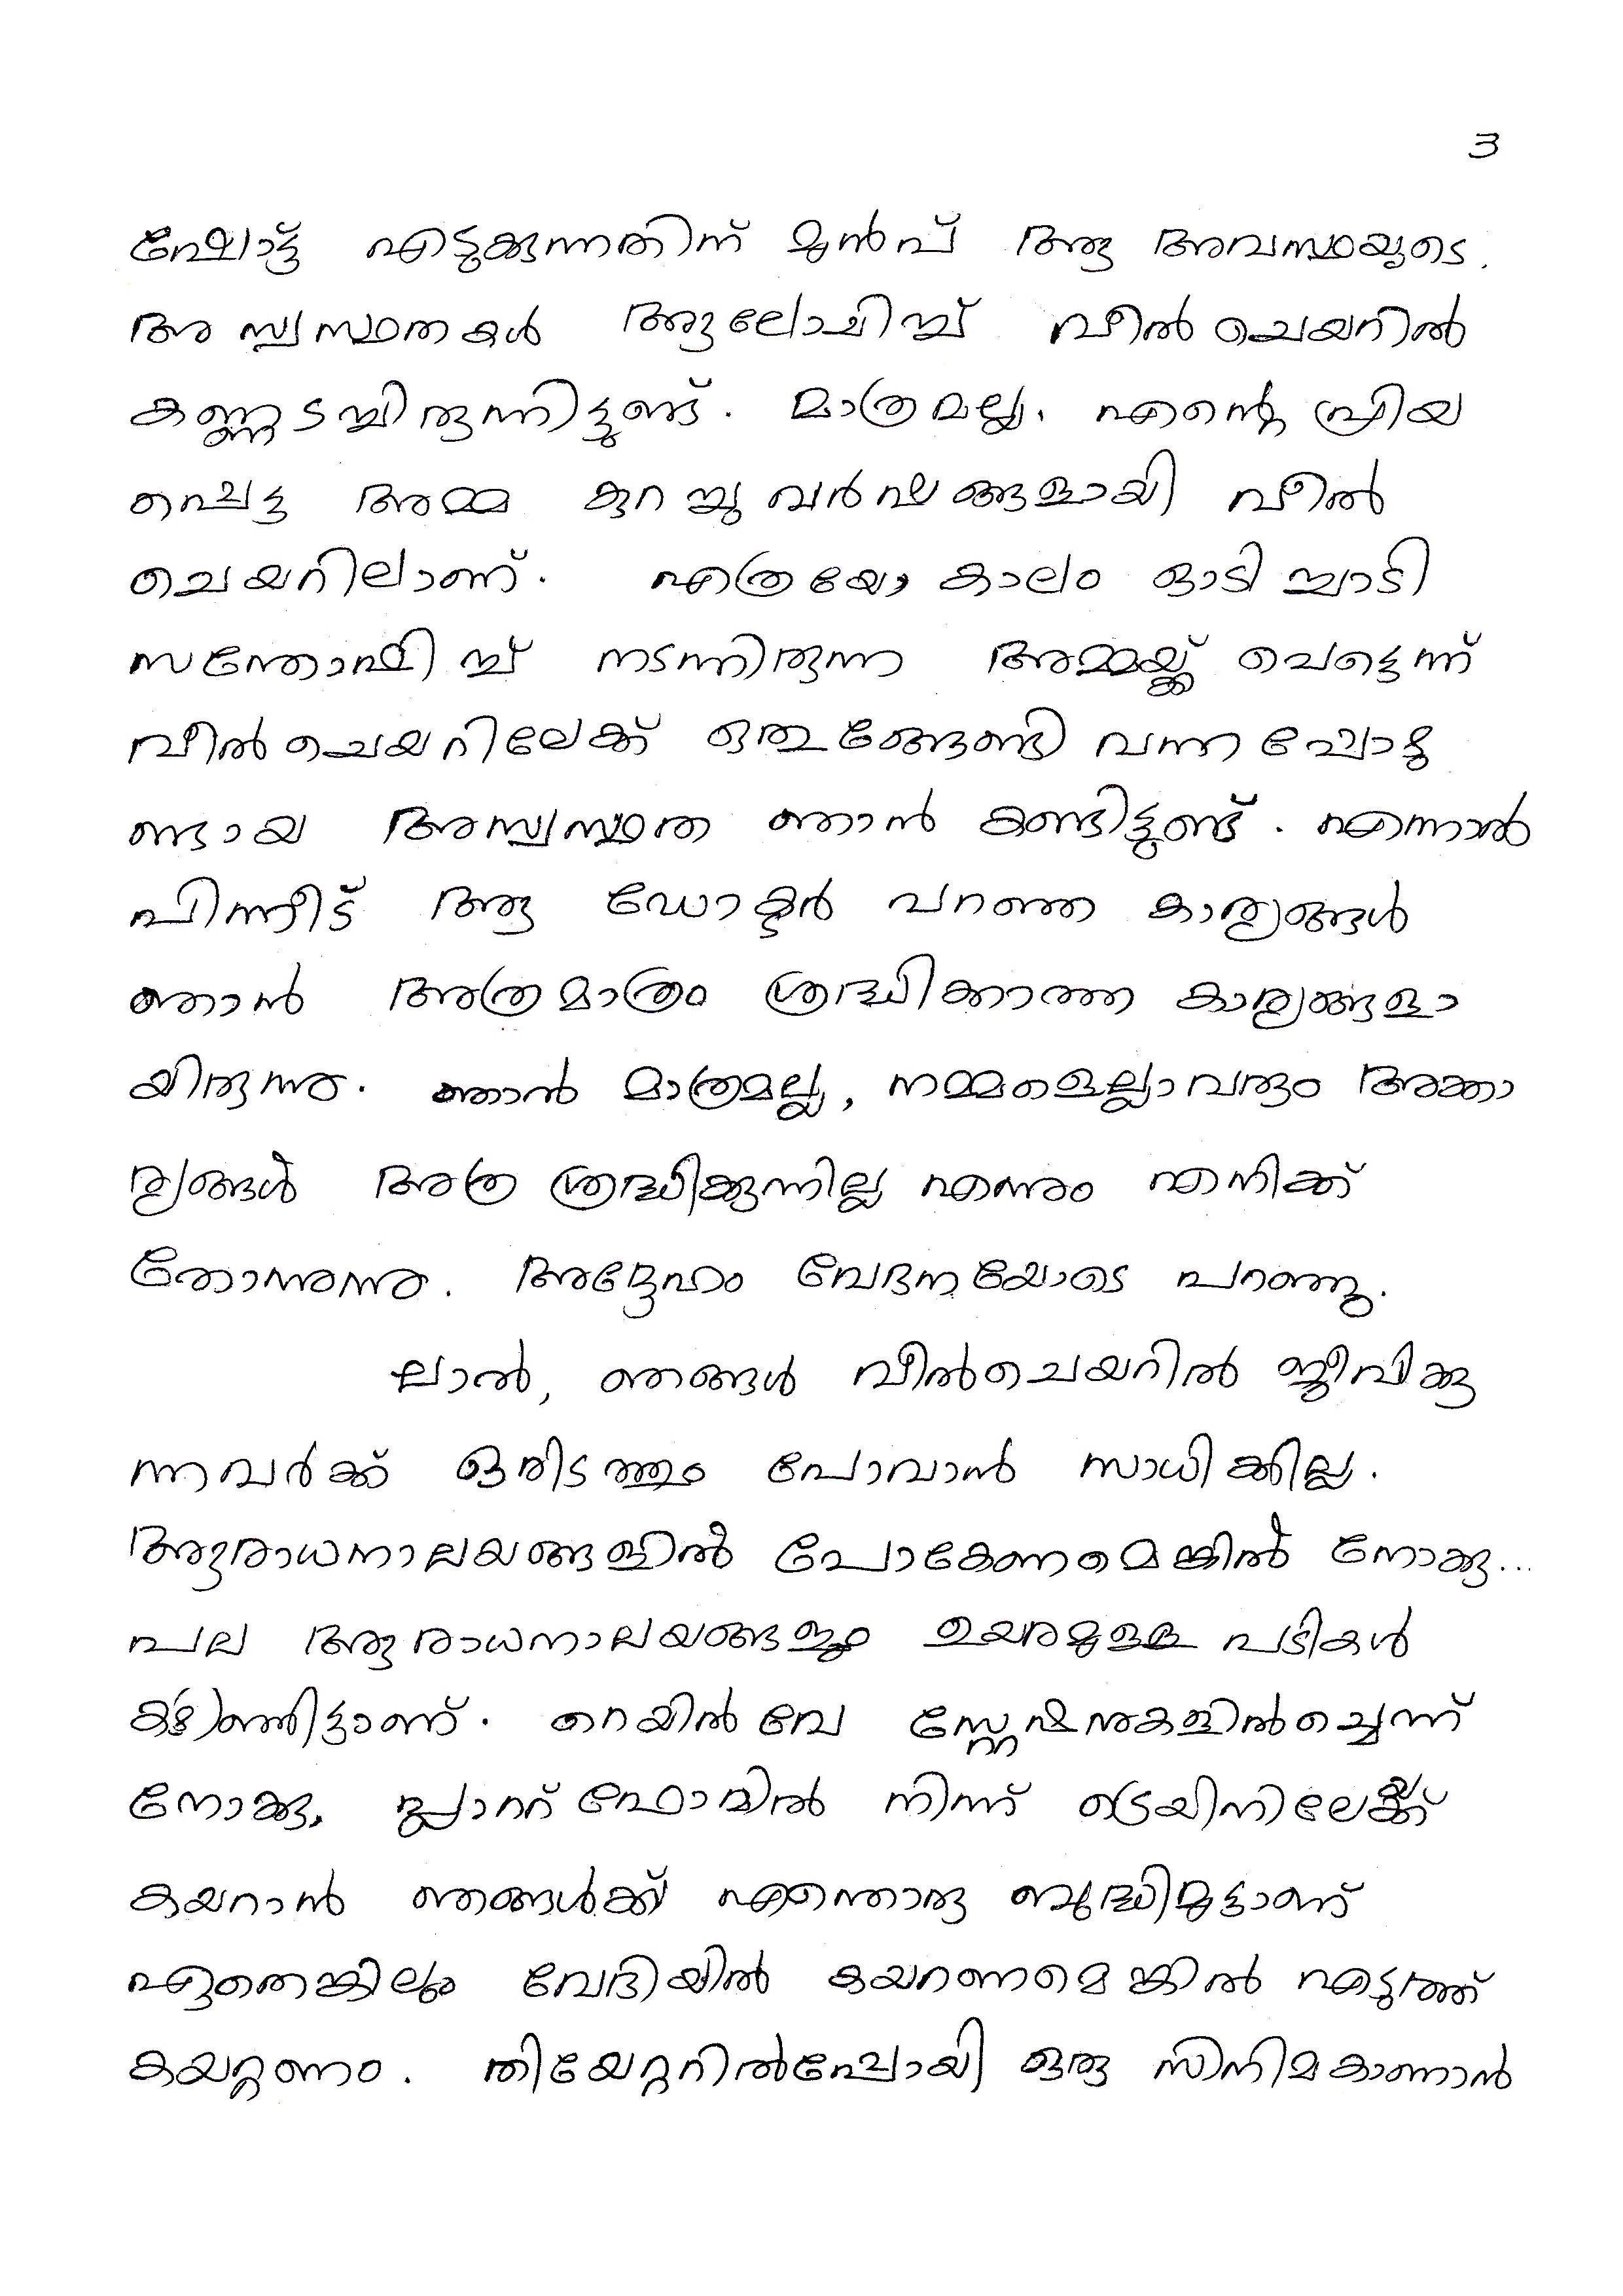 3
ഷോട്ട് എടുക്കുന്നതിന് മുൻപ് ആ അവസ്ഥയുടെ.
അസ്വസ്ഥതകൾ ആലോചിച്ച് വീൽചെയറിൽ
കണ്ണടച്ചിരുന്നിട്ടുണ്ട്. മാത്രമല്ല, എന്റെ പ്രിയ
പ്പെട്ട അമ്മ കുറച്ചു വർഷങ്ങളായി വീൽ
ചെയറിലാണ്. എത്രയോ കാലം ഓടിച്ചാടി
സന്തോഷിച്ച് നടന്നിരുന്ന അമ്മയ്ക്ക് പെട്ടെന്ന്
വീൽചെയറിലേക്ക് ഒതുങ്ങേണ്ടി വന്നപ്പോഴു
ണ്ടായ അസ്വസ്ഥത ഞാൻ കണ്ടിട്ടുണ്ട്. എന്നാൽ
പിന്നീട് ആ ഡോക്ടർ പറഞ്ഞ കാര്യങ്ങൾ
ഞാൻ അത്രമാത്രം ശ്രദ്ധിക്കാത്ത കാര്യങ്ങളാ
യിരുന്നു. ഞാൻ മാത്രമല്ല, നമ്മളെല്ലാവരും അക്കാ
ര്യങ്ങൾ അത്ര ശ്രദ്ധിക്കുന്നില്ല എന്നും എനിക്ക്
തോന്നുന്നു. അദ്ദേഹം വേദനയോടെ പറഞ്ഞു.
ലാൽ, ഞങ്ങൾ വീൽചെയറിൽ ജീവിക്കു
ന്നവർക്ക് ഒരിടത്തും പോവാൻ സാധിക്കില്ല.
ആരാധനാലയങ്ങളിൽ പോകേണമെങ്കിൽ നോക്കൂ...
പല ആരാധനാലയങ്ങളും ഉയരമുള്ള പടികൾ
കഴിഞ്ഞിട്ടാണ്. റെയിൽവേ സ്റ്റേഷനുകളിൽച്ചെന്ന്
നോക്കൂ, പ്ലാറ്റ്ഫോമിൽ നിന്ന് ട്രെയിനിലേയ്ക്ക്
കയറാൻ ഞങ്ങൾക്ക് എന്തൊരു ബുദ്ധിമുട്ടാണ്
ഏതെങ്കിലും വേദിയിൽ കയറണമെങ്കിൽ എടുത്ത്
കയറ്റണം. തിയേറ്ററിൽപ്പോയി ഒരു സിനിമകാണാൻ